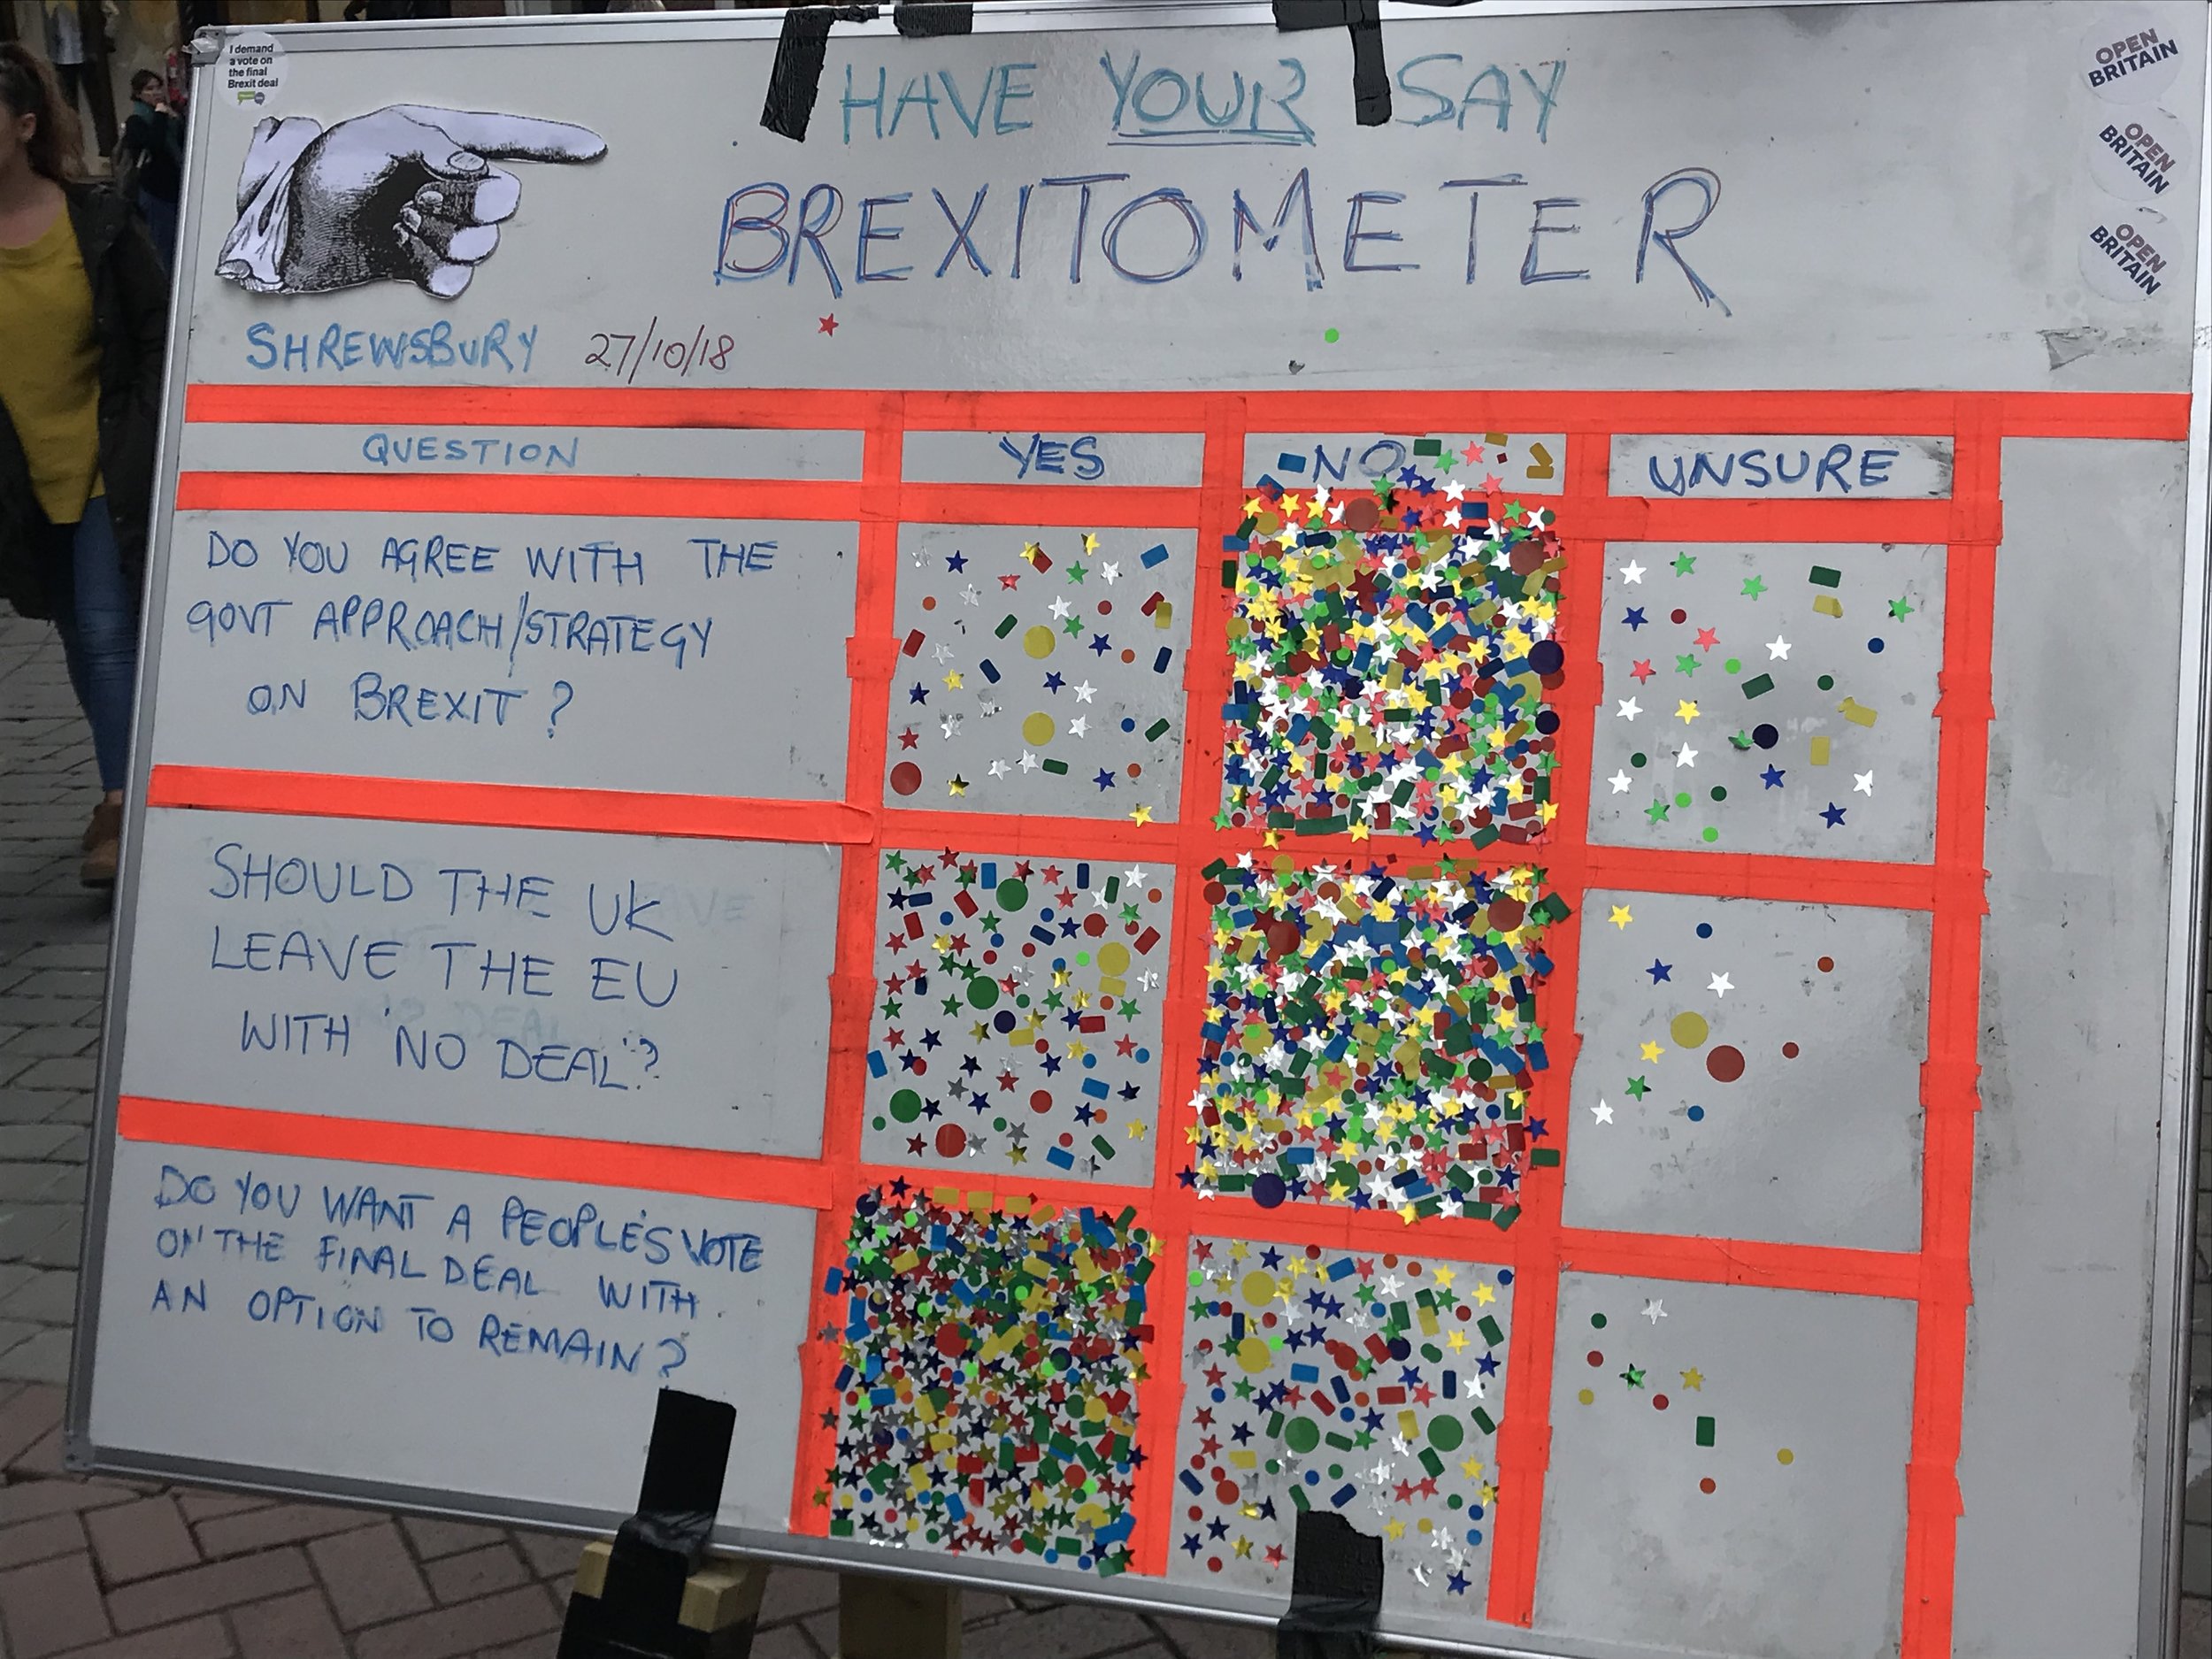 I demand
a vote on
the final
Brexit deal
HAVE YOUR SAY
BREXITOMETER
OPEN
BRITAIN
OPEN
BRITAIN
OPEN
BRITAIN
SHREWSBURY 27/10/18
QUESTION YES NO UNSURE
DO YOU AGREE WITH THE
GOVT APPROACH/STRATEGY
ON BREXIT?
SHOULD THE UK
LEAVE THE EU
WITH 'NO DEAL'?
DO YOU WANT A PEOPLE'S VOTE
ON THE FINAL DEAL WITH
AN OPTION TO REMAIN?